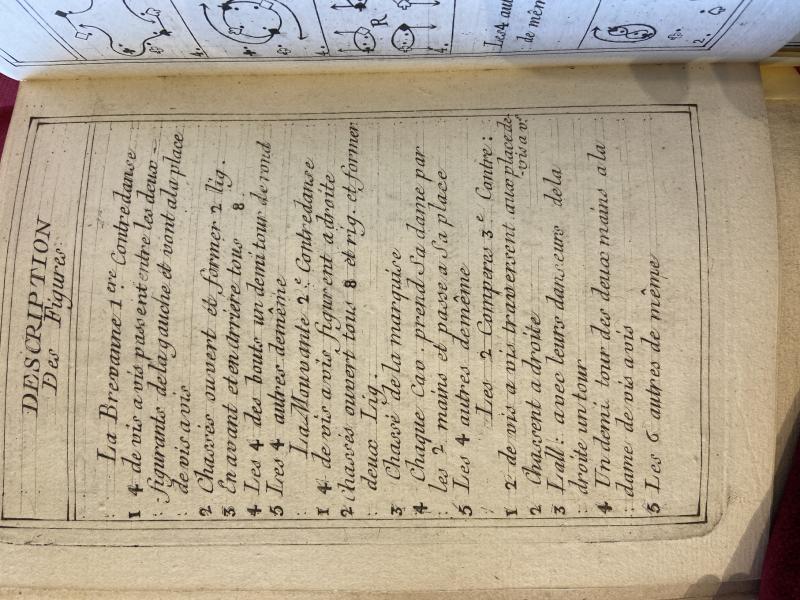 DESCRIPTION
Des Figures.
La Brevanne 1.ere Contredanse
1 4 de vis a vis passent entre les deux =
figurants de la gauche et vont a la place
de vis a vis
2 Chassés ouvert et former 2 lig.
3 En avant et en arriere tous 8
4 Les 4 des bouts un demi tour de rond
5 Les 4 autres de même
La Mouvante 2.e Contredanse
1 4 de vis a vis figurent a droite
2 Chassés ouvert tous 8 et rig. et former
deux Lig.
3 Chassé de la marquise
4 Chaque Cav. prend Sa dame par
les 2 mains et passe a Sa place
5 Les 4 autres de même
Les 2 Comperes 3.e Contre:
1 2 de vis a vis traversent aux place de-
-vis a vi
2 Chassent a droite
3 L'all: avec leurs danseurs de la
droite un tour
4 Un demi tour des deux mains a la
dame de vis a vis
5 Les 6 autres de même
4.
R
Les 4 aut
de mêm
2.